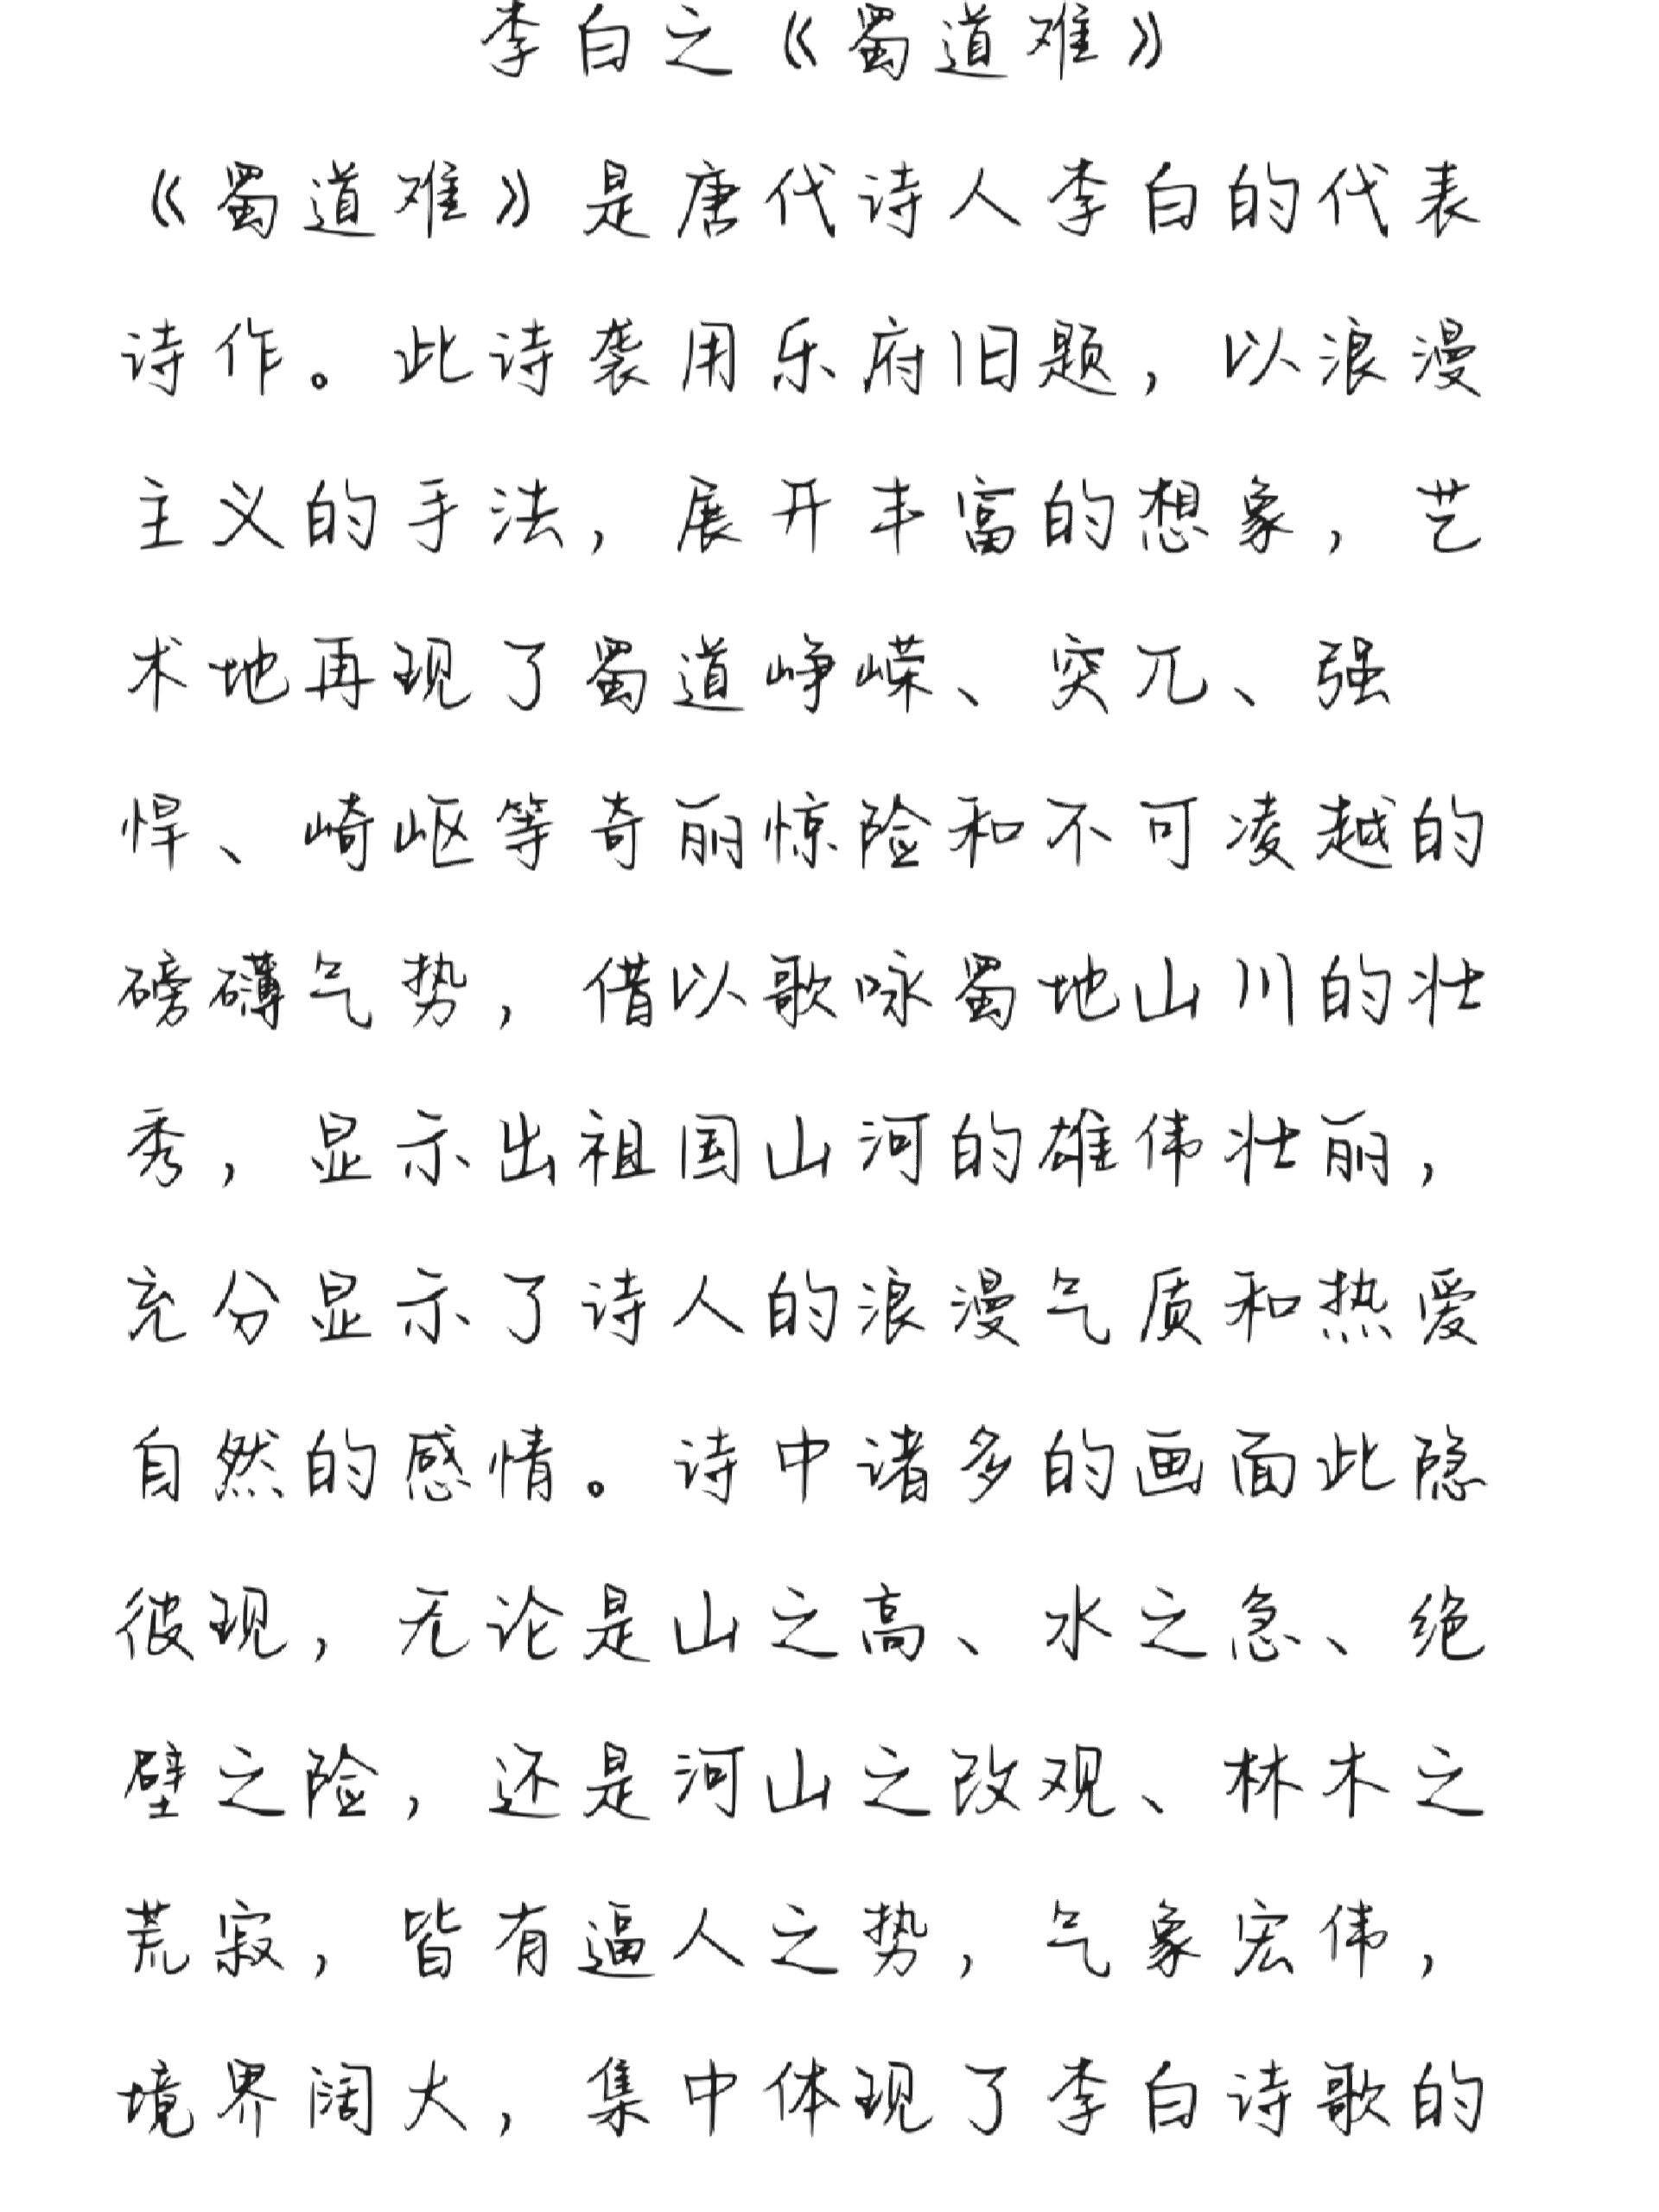 李白之《蜀道难》
《蜀道难》是唐代诗人李白的代表
诗作。此诗袭用乐府旧题，以浪漫
主义的手法，展开丰富的想象，艺
术地再现了蜀道峥嵘、突兀、强
悍、崎岖等奇丽惊险和不可凌越的
磅礴气势，借以歌咏蜀地山川的壮
秀，显示出祖国山河的雄伟壮丽，
充分显示了诗人的浪漫气质和热爱
自然的感情。诗中诸多的画面此隐
彼现，无论是山之高、水之急、绝
壁之险，还是河山之改观、林木之
荒寂，皆有逼人之势，气象宏伟，
境界阔大，集中体现了李白诗歌的